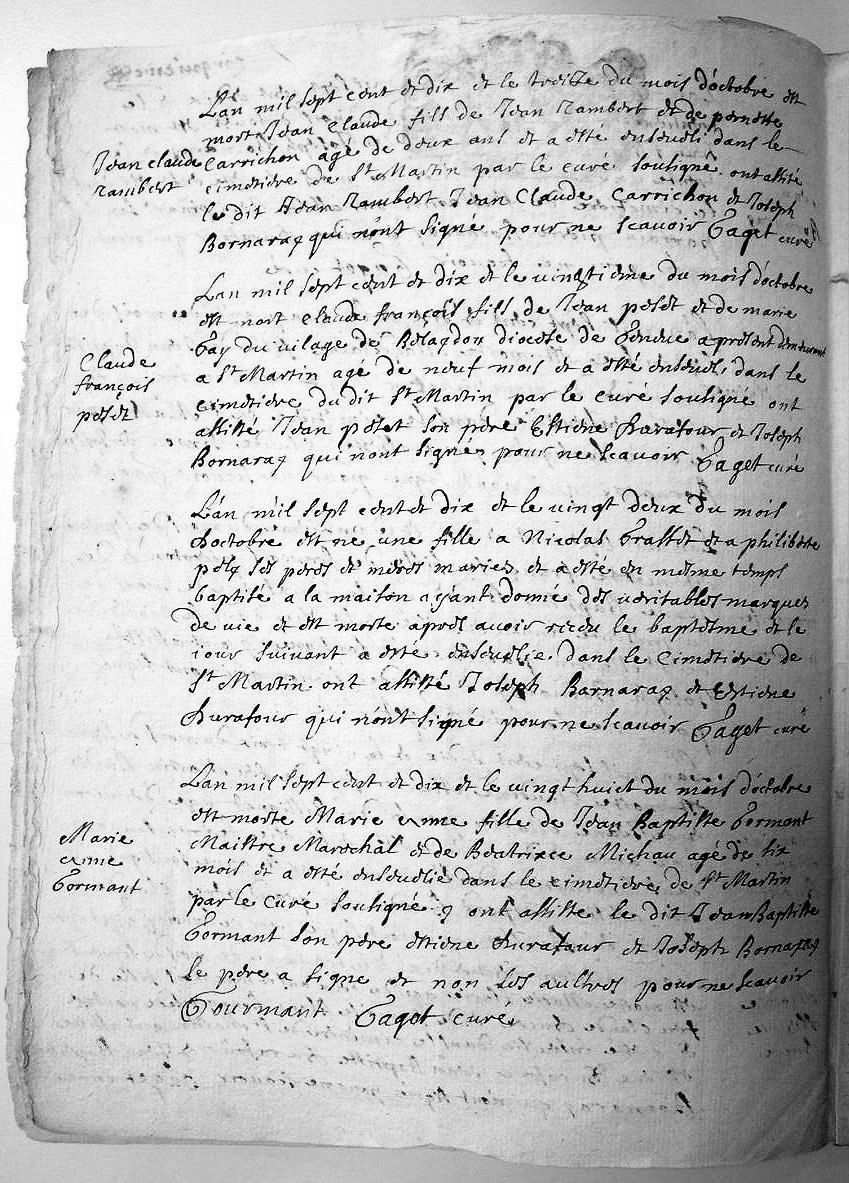 L'an mil sept cent et dix et le treizze du mois d'octobre est
mort Jean Claude fils de Jean Rambert et de pernette
Jean Claude
Rambert
Carrichon agé de deux ans et a esté enseveli dans le
cimetiere de St Martin par le curé soussigné ont assisté
le dit Jean Rambert Jean Claude Carrichon et Joseph
Bornaraz qui n'ont signé pour ne scavoir Gaget curé
L'an mil sept cent et dix et le vingtieme du mois d'octobre
est mort Claude françois fils de Jean petet et de marie
Gay du vilage de diocese de Geneve a present demeurant
Claude
françois
petet
a St Martin agé de neuf mois et a esté enseveli dans le
cimetiere du dit St Martin par le curé soussigné ont
assisté Jean petet son pere Estiene durafour et Joseph
Bornaraz qui n'ont signés pour ne scavoir Gaget curé
L'an mil sept cent et dix et le vingt deux du mois
d'octobre est ne une fille a Nicolas Grasset et a philiberte
ses peres et meres mariez et a esté en mesme temps
baptisé a la maison ayant donné des veritables marques
de vie et est morte apres avoir receu le baptesme et le
iour suivant a esté ensevelie dans le cimetiere de
St Martin ont assisté Joseph Barnaraz et Estiene
durafour qui n'ont signé pour ne scavoir Gaget curé
L'an mil sept cent et dix et le vingt huict du mois d'octobre
est morte Marie anne fille de Jean Baptiste Gormant
Marie
anne
Gormant
Maistre Marechal et de Beatrixce Michau agé de six
mois et a esté ensevelie dans le cimetiere de St Martin
par le Curé soussigné ont assiste le dit Jean Baptiste
Gormant son pere estiene durafour et Joseph Bornaraz
le pere a signe et non les aultres pour ne scavoir
Gourmant Gaget curé